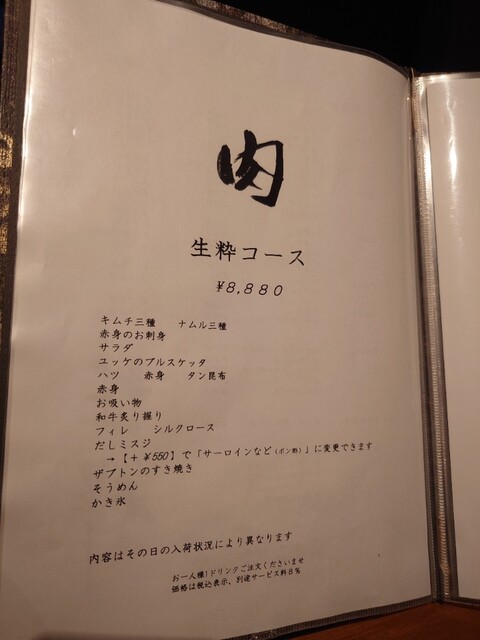 肉
生粋コース
¥8,880
キムチ三種 ナムル三種
赤身のお刺身
サラダ
ユッケのブルスケッタ
ハツ 赤身 タン昆布
赤身
お吸い物
和牛炙り握り
フィレ シルクロース
だしミスジ
→【+ ¥550】で「サーロインなど(ポン酢)」に変更できます
ザブトンのすき焼き
そうめん
かき氷
内容はその日の入荷状況により異なります
お一人様1ドリンクご注文くださいませ
価格は税込表示、別途サービス料8%